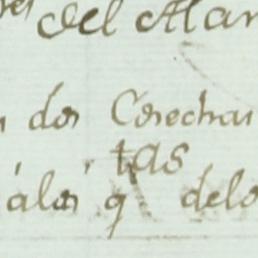 del Mar
dos Cosechas
tas
alos q delo